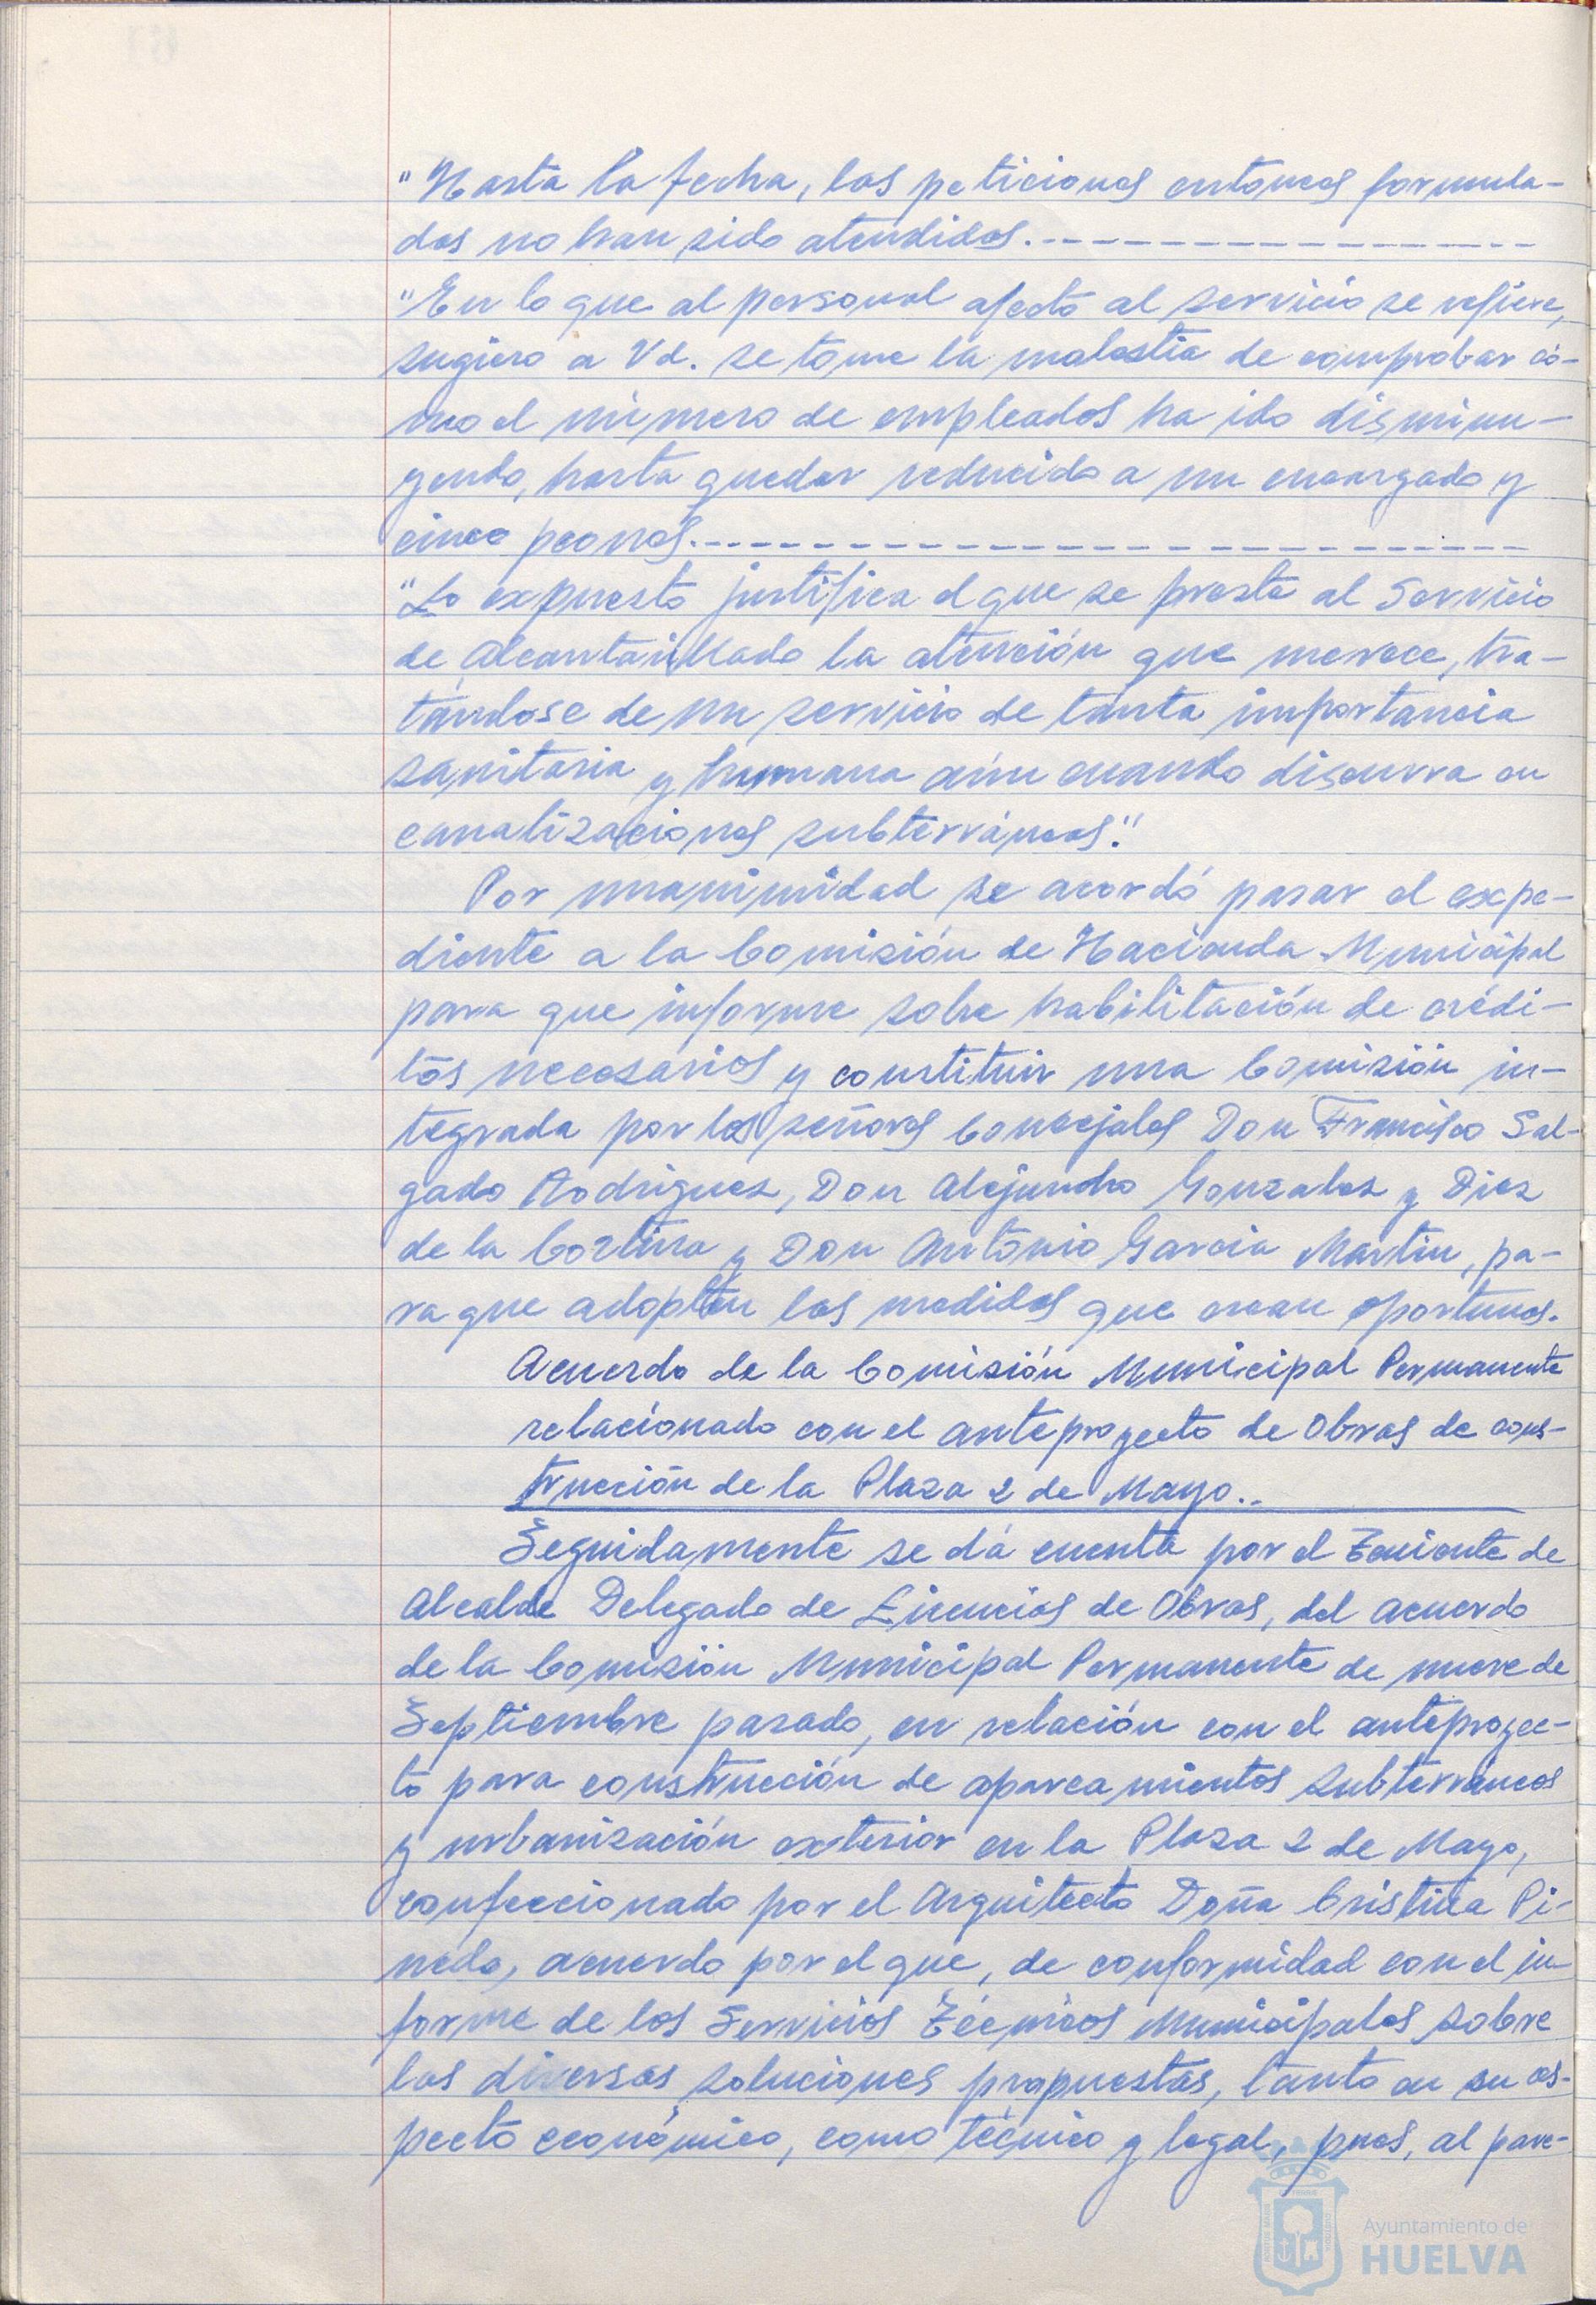 "Hasta la fecha, las peticiones entonces formula-
das no han sido atendidas.
"En lo que al personal afecto al servicio se refiere,
sugiero a Vd. se tome la molestia de comprobar có-
mo el número de empleados ha ido disminu-
yendo, hasta quedar reducido a un encargado y
cinco peones.
"Lo expuesto justifica el que se preste al Servicio
de Alcantarillado la atención que merece, tra-
tandose de un servicio de tanta importancia
sanitaria y humana aún cuando discurra en
canalizaciones subterráneas."
Por unanimidad se acordó pasar el expe-
diente a la Comisión de Hacienda Municipal
para que informe sobre habilitación de crédi-
tos necesarios y constituir una Comisión in-
tegrada por los señores Concejales Don Francisco Sal-
gado Rodriguez, Don Alejandro Gonzalez y Diez
de la Cortina y Don Antonio Garcia Martin, pa-
ra que adopten las medidas que crean oportunas.
Acuerdo de la Comisión Municipal Permanente
relacionado con el anteproyecto de Obras de cons-
trucción de la Plaza 2 de Mayo..
Seguidamente se dá cuenta por el Teniente de
Alcalde Delegado de Licencias de Obras, del acuerdo
de la Comisión Municipal Permanente de nueve de
Septiembre pasado, en relación con el anteproyec-
to para construcción de aparcamientos subterraneos
y urbanización exterior en la Plaza 2 de Mayo,
confeccionado por el Arquitecto Doña Cristina Pi-
neda, acuerdo por el que, de conformidad con el in-
forme de los Servicios Técnicos Municipales sobre
las diversas soluciones propuestas, tanto en su as-
pecto económico, como técnico y legal, pues, al pare-
Ayuntamiento de
HUELVA